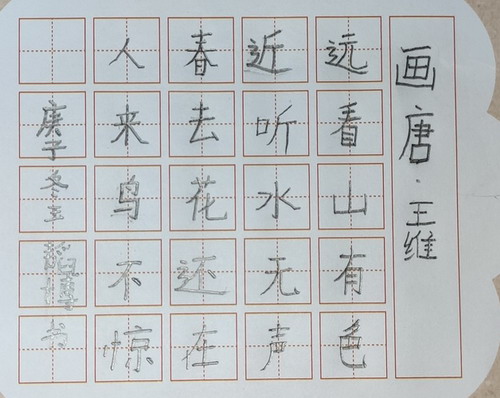 画 唐·王维
远看山有色
近听水无声
春去花还在
人来鸟不惊
庚子冬至
韬博书